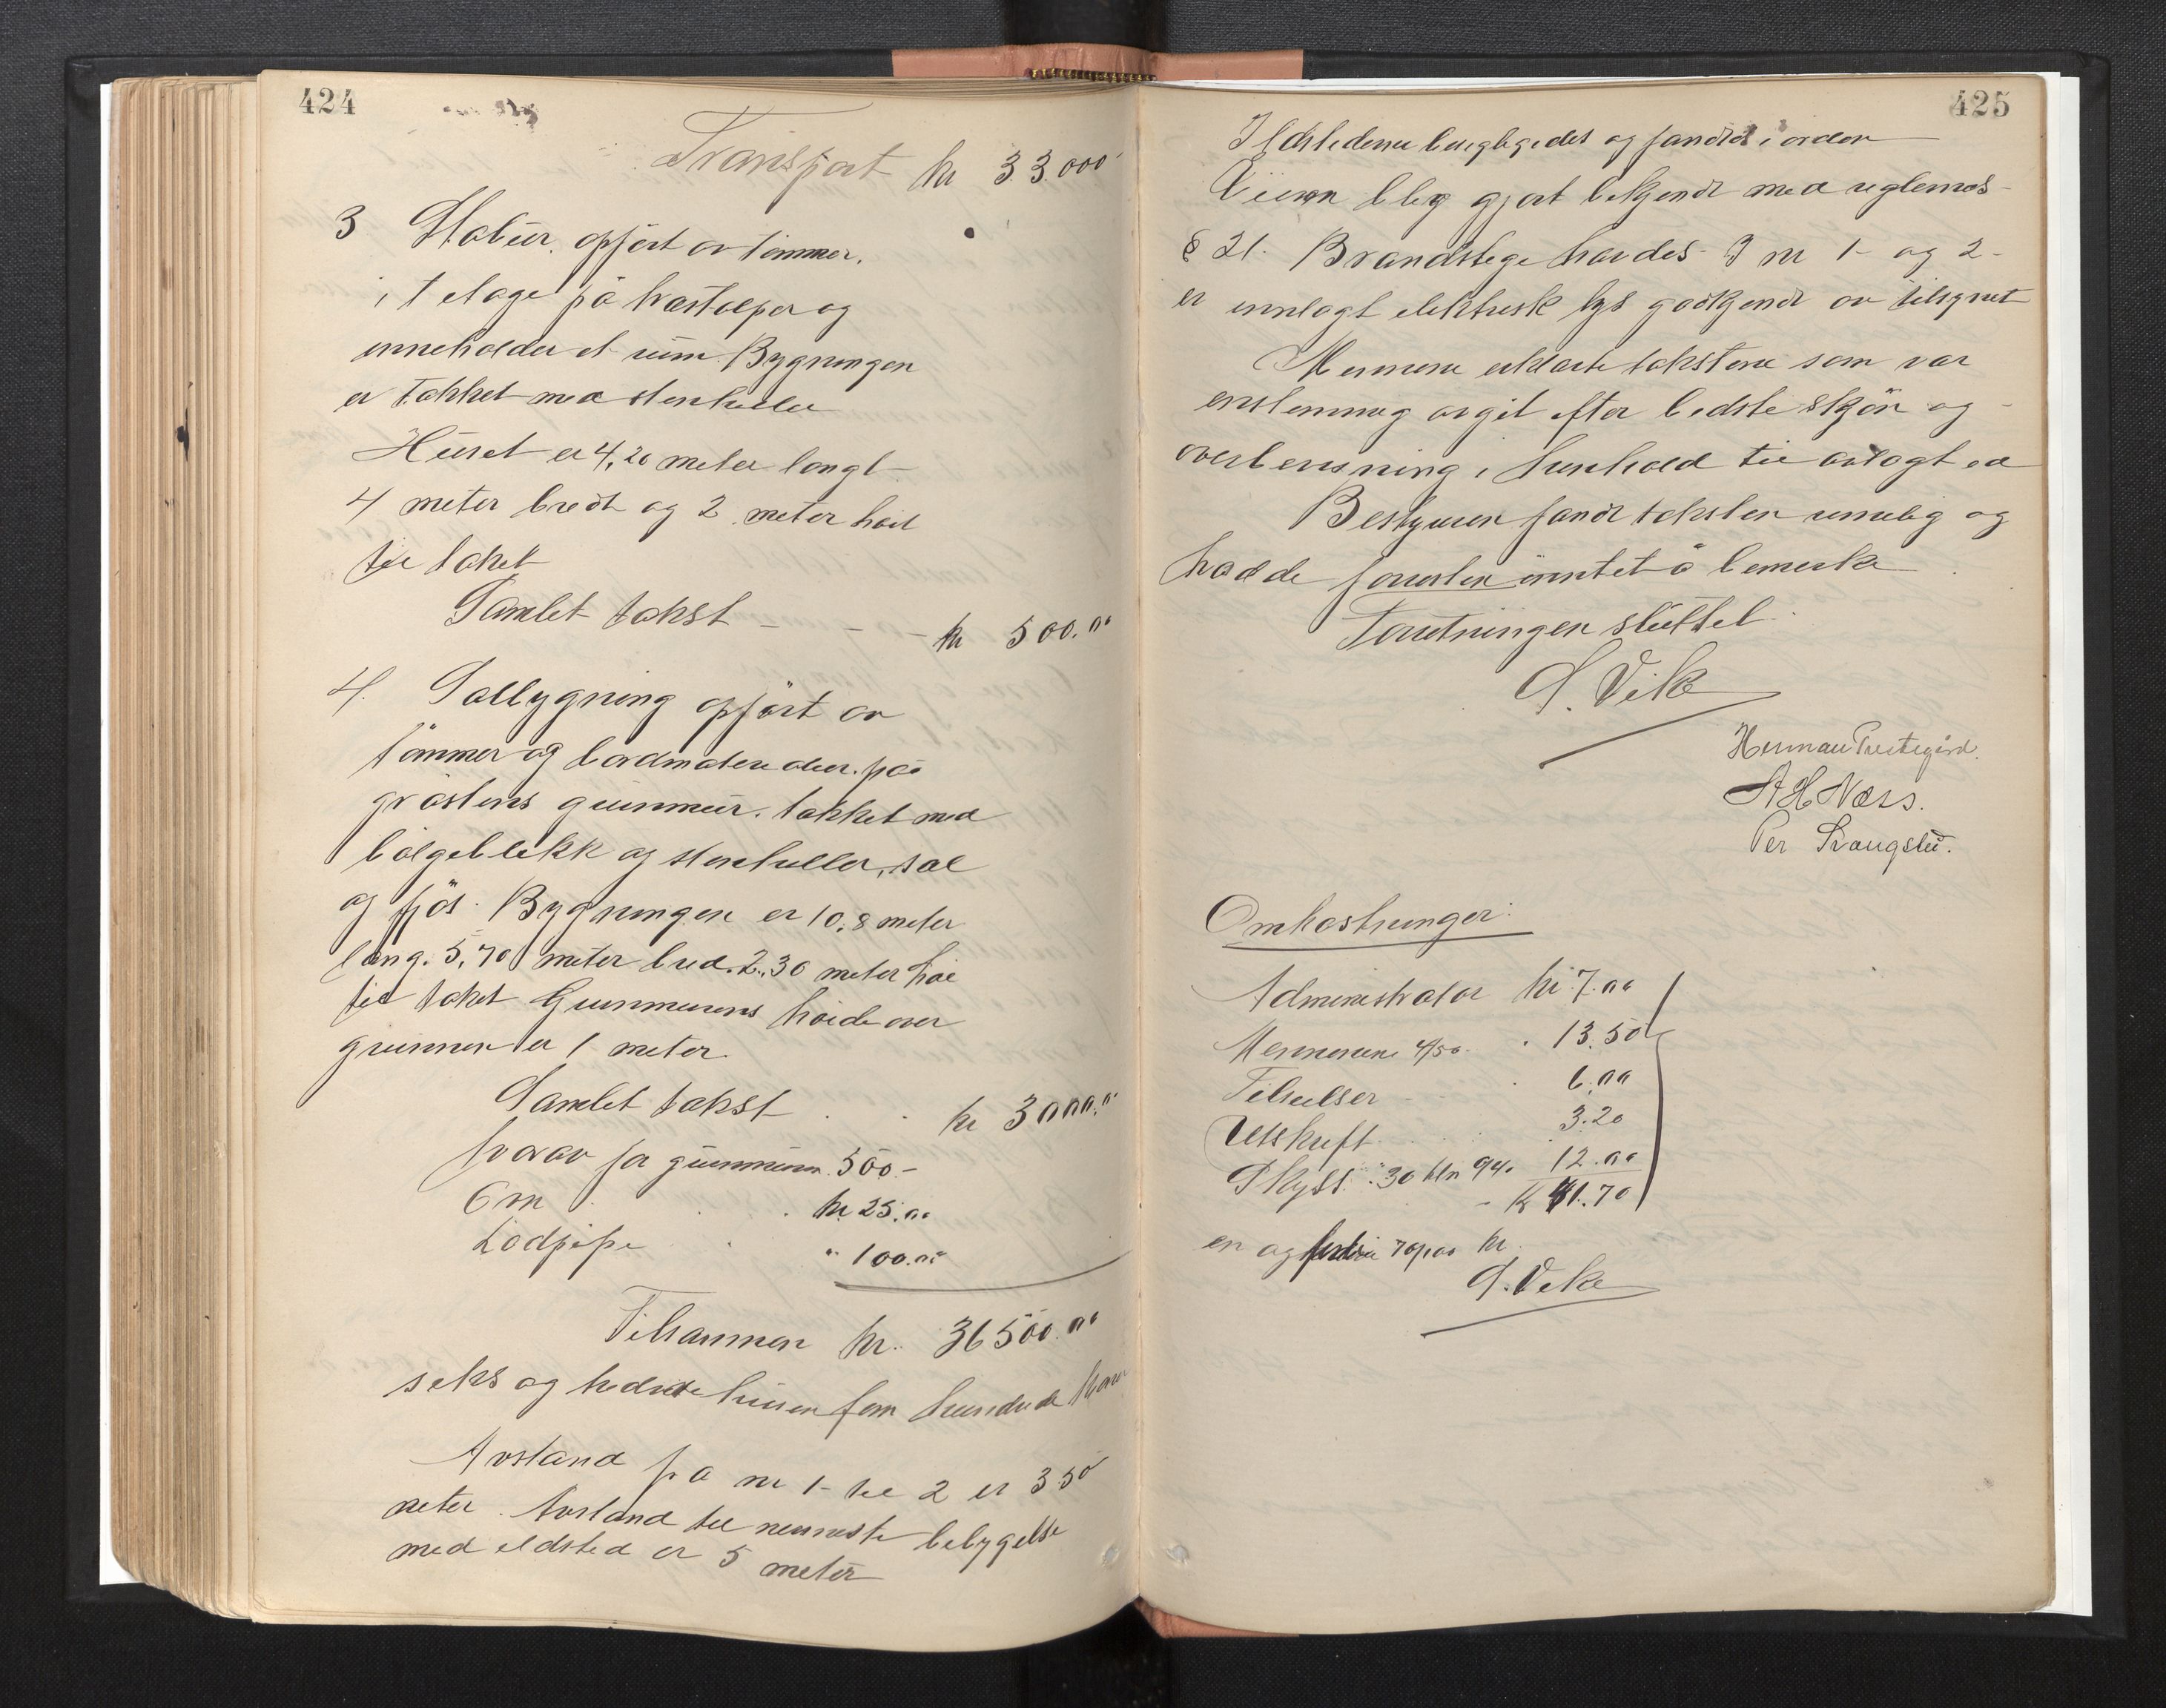 424
Transport kr 33.000
3 Stabur. opført av tømmer.
i 1 etage på træstolper og
inneholder et rum. Bygningen
er tækket med stenheller
Huset er 4,20 meter langt
4 meter bredt og 2 meter høit
til taket
Samlet takst - - - kr 500.00
4. Løebygning opført av
tømmer og bordmaterialier. på
gråstens grunnmur. tækket med
bølgeblikk og stenheller,
og fjøs. Bygningen er 10,8 meter
lang. 5,70 meter bred. 2,30 meter høi
til taket Grunnmurens høide over
grunnen er 1 meter.
Samlet takst . . kr 3000.00
hvorav for grunnmuren 500.-
Ovn . . kr 25.00
Lodpipe . " 100.00
Tilsammen kr. 36500.00
seks og tredive tusen fem hundrede kroner
Avstand fra nr 1- til 2 er 350
meter. Avstand til nermeste bebygelse
med ildsted er 5 meter
425
Ildstedene besigtigedes og fandtes i orden
Eieren blev gjort bekjendt med reglemas-
§ 21. Brandstige havdes. I nr 1- og 2-
er innlagt elektrisk lys godkjendt av tilsynet
Mennene erklærte takstene som var
enstemmig avgit efter bedste skjøn og
overbevisning i henhold til avlagt ed
Bestyreren fandt taksten rimelig og
hadde forresten inntet å bemerke
Forretningen sluttet.
S. Vik
Herman Prestegård.
A H Næss.
Per Skaugstu.
Omkostninger:
Administrator kr 7.00
Mennene 4/50. . 13.50
Tilsielser . 6.00
Utskrift. . . . 3.20
Skyss. 30 klm 94. 12.00
- Kr 41.70
en og førtie 70/100 kr.
S. Vik